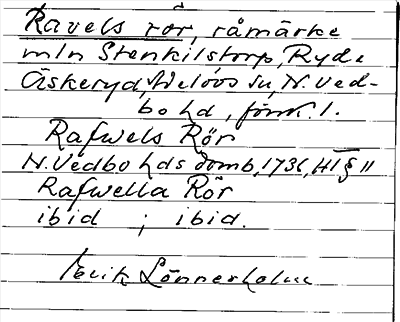 Ravels rör, råmärke
mln Stenkilstorp, Ryd o
Äskeryd, Adelövs sn, N. Ved-
bo hd, förnk. 1.
Rafwels Rör
N. Vedbo hds domb, 1736, HI § 11
Rafwella Rör
ibid ; ibid.
Erik Lönnerholm